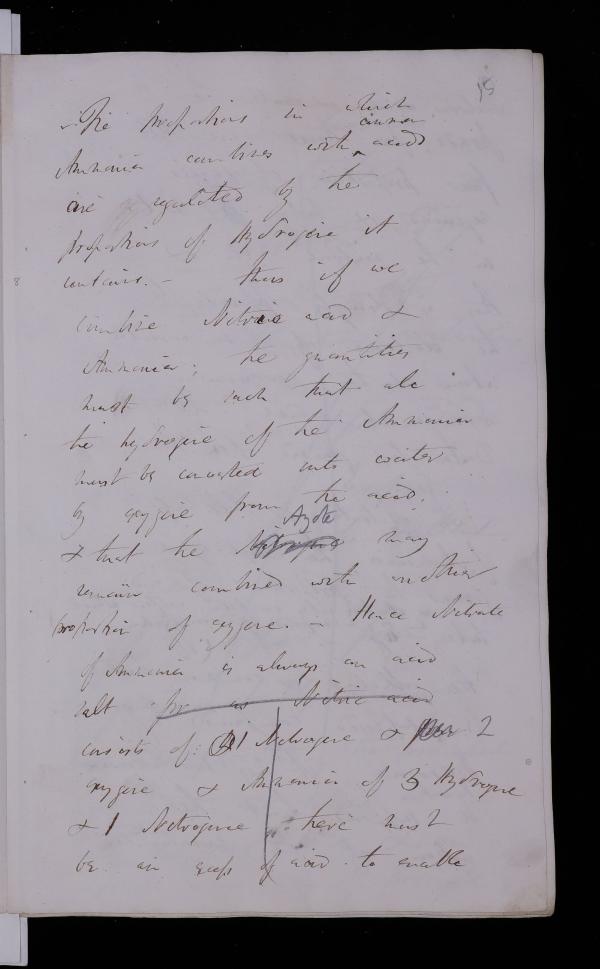 15
The proportions in which
Ammonia combines with acids
are regulated by the
proportions of Hydrogene it
contains. - thus if we
combine Nitric acid &
Ammonia; the quantities
must be such that all
the hydrogene of the Ammonia
must be converted into water
by oxygene from the acid,
& that the Azote may
remain combined with another
proportion of oxygene. - Hence Nitrate
of Ammonia is always an acid
salt for as Nitric acid
consists of 1 Nitrogene & 2
oxygene & Ammonia of 3 Hydrogene
& 1 Nitrogene there must
be an excess of acid to enable